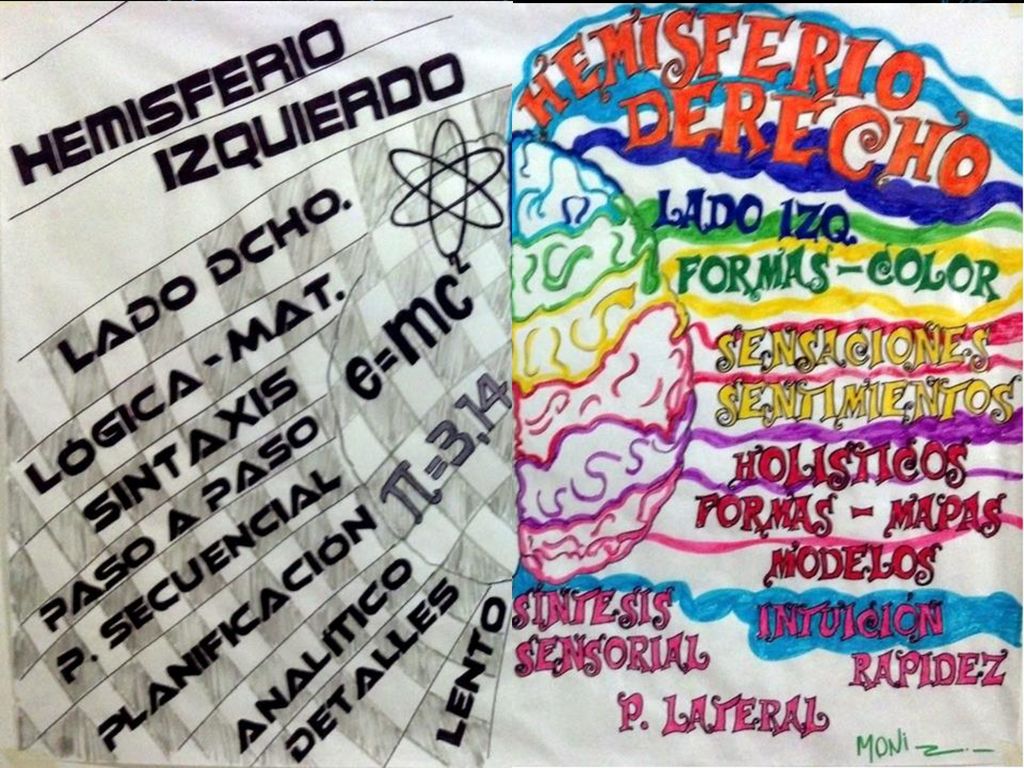 HEMISFERIO
IZQUIERDO
LADO DCHO.
LÓGICA - MAT.
SINTAXIS
PASO A PASO
P. SECUENCIAL
PLANIFICACIÓN
ANALÍTICO
DETALLES
LENTO
e=mc²
π=3,14
HEMISFERIO
DERECHO
LADO IZQ.
FORMAS - COLOR
SENSACIONES
SENTIMIENTOS
HOLISTICOS
FORMAS - MAPAS
MODELOS
SÍNTESIS
SENSORIAL
INTUICIÓN
RAPIDEZ
P. LATERAL
MONI